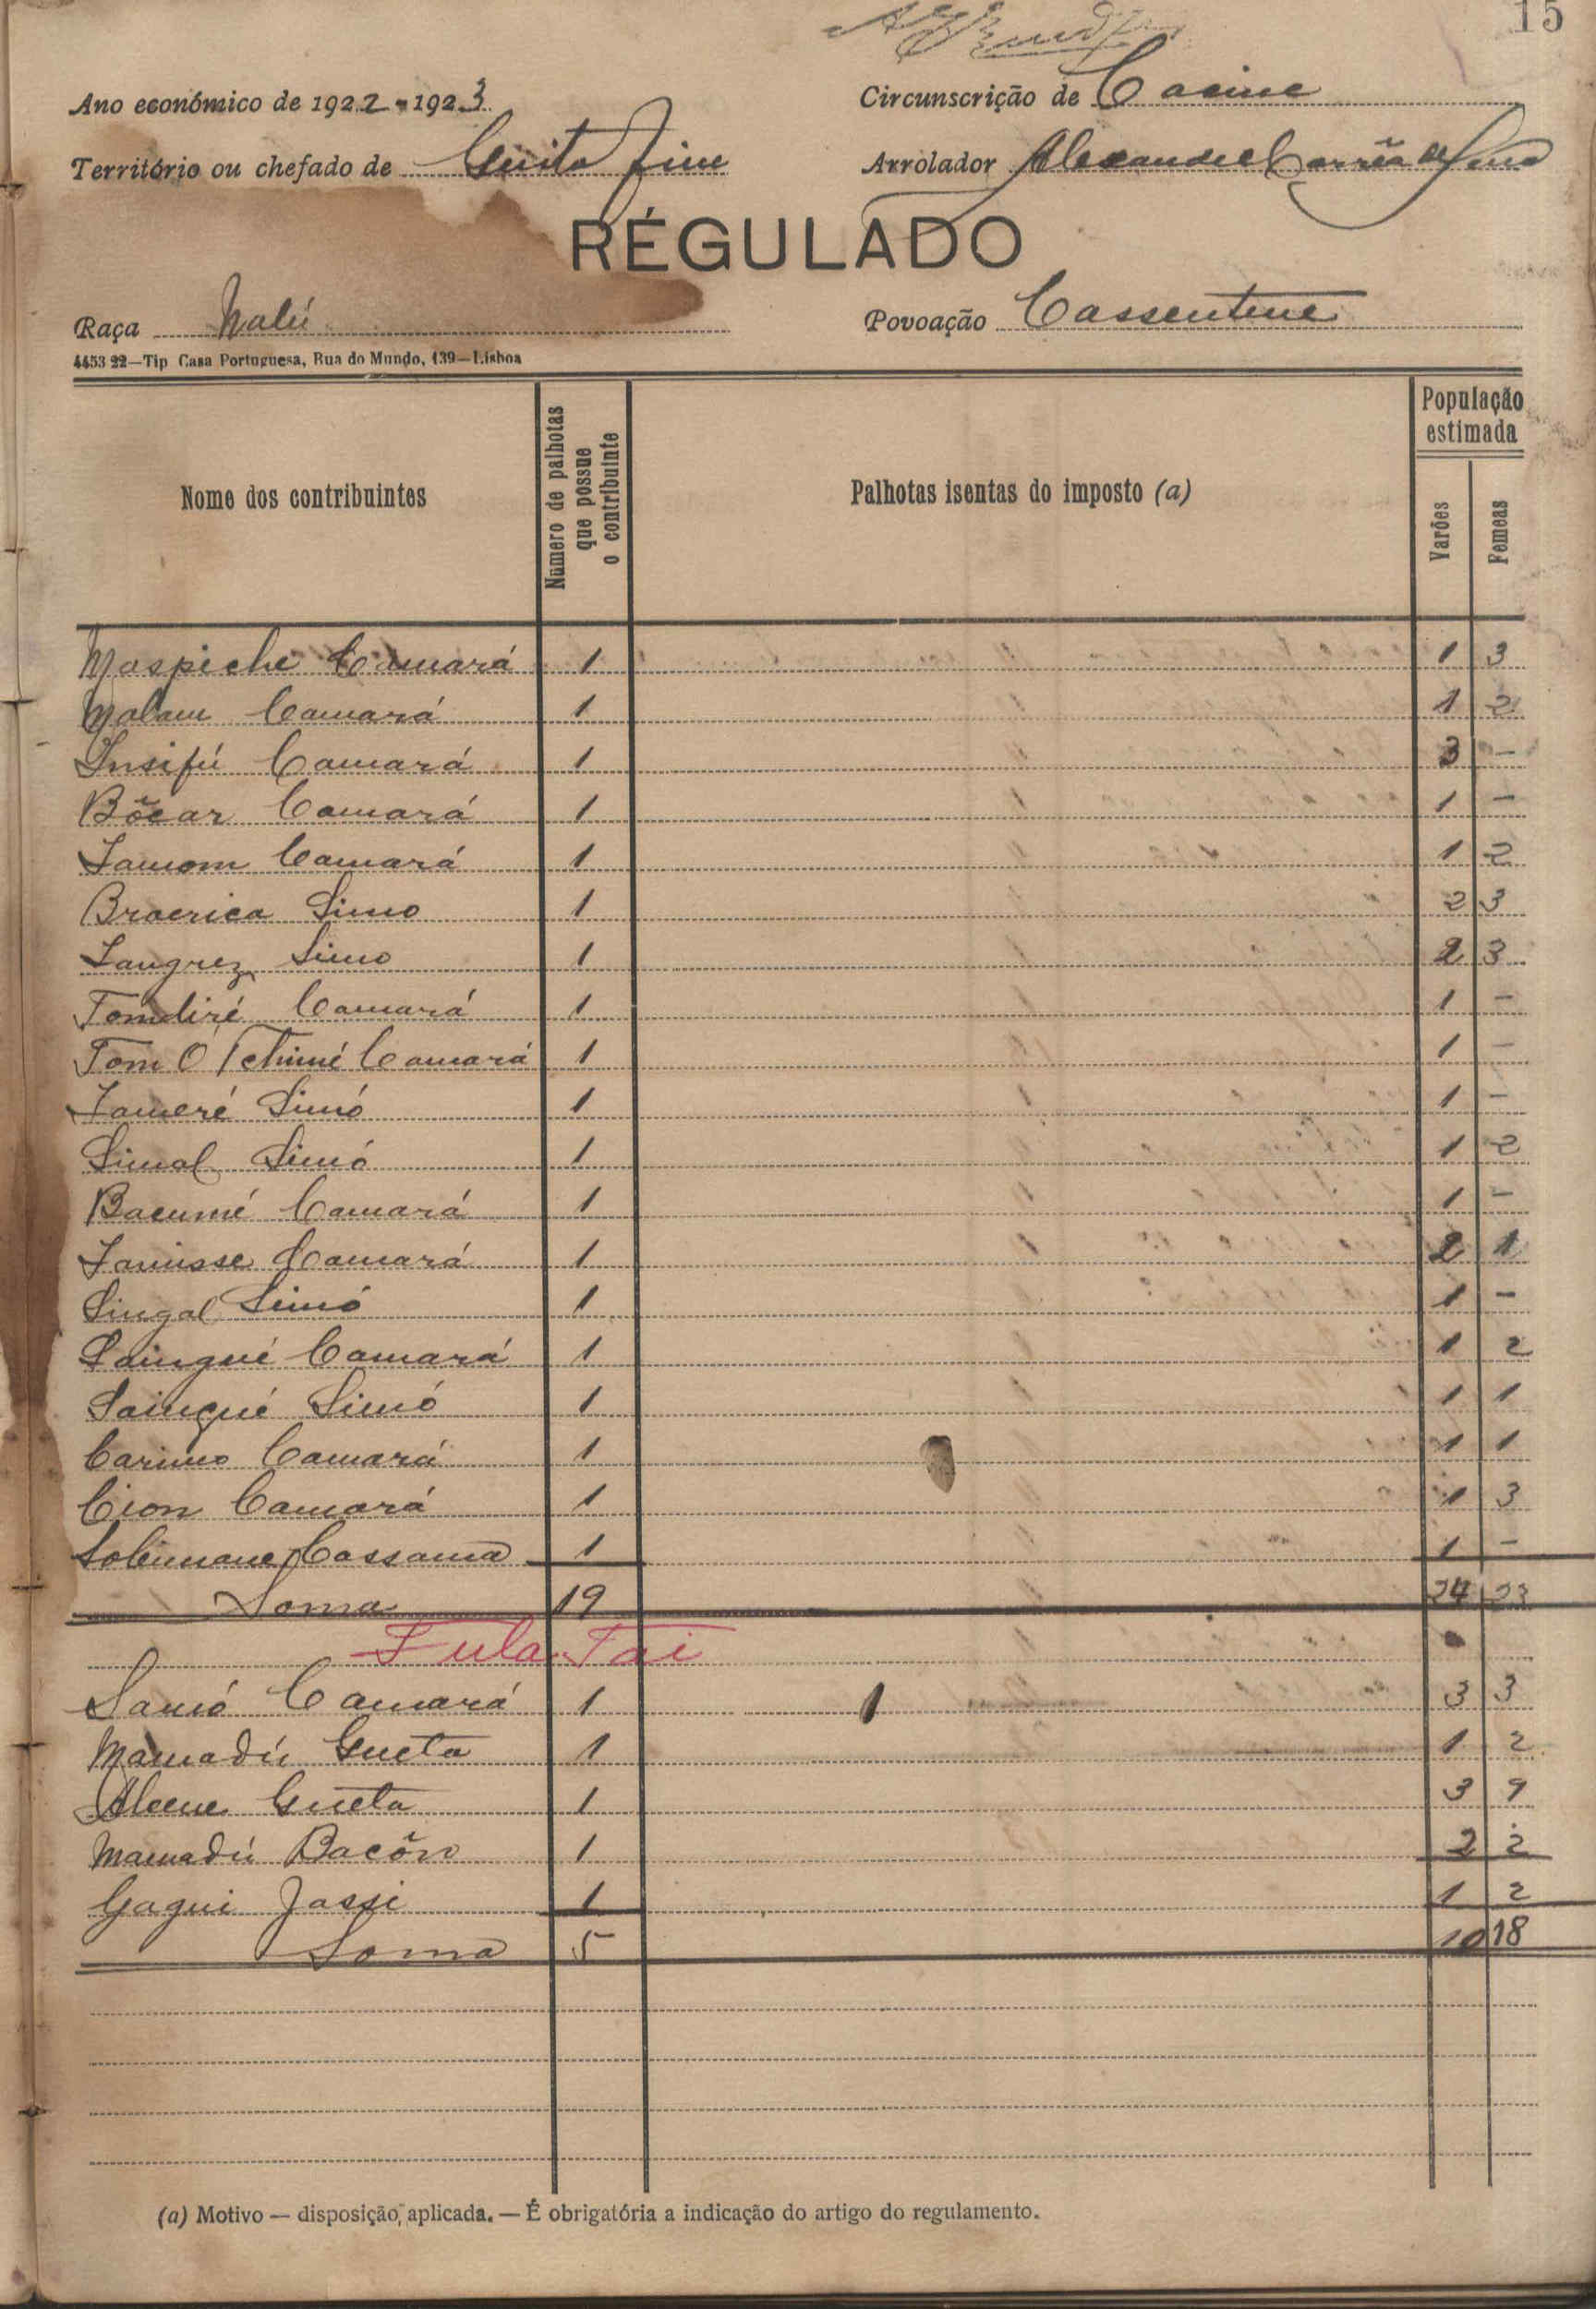 15
Ano económico de 1922-1923. Circunscrição de Cacine
Território ou chefado de Guita fine Arrolador Alexandre Corrêa de Sena
RÉGULADO
Raça Nalú Povoação Cassentene
4453 22—Tip Casa Portuguesa, Rua do Mundo, 139—Lisboa
Nome dos contribuintes Número de palhotas que possue o contribuinte Palhotas isentas do imposto (a) População estimada Varões Femeas
Maspiche Camará 1 1 3
Malam Camará 1 1 2
Insifú Camará 1 3 -
Bôcar Camará 1 1 -
Lamom Camará 1 1 2
Braerica Simo 1 2 3
Langrez Simo 1 2 3
Tomdiré Camará 1 1 -
Tom O Tchimé Camará 1 1 -
Lameré Simó 1 1 -
Simal Simó 1 1 2
Bacumé Camará 1 1 -
Lamisse Camará 1 2 1
Singal Simó 1 1 -
Saingué Camará 1 1 2
Sainqué Simó 1 1 1
Carimo Camará 1 1 1
Cion Camará 1 1 3
Soleimane Cassama 1 1 -
Soma 19 24 23
Fula Tai
Samó Camará 1 1 3 3
Mamadú Gueta 1 1 2
Aleene Gueta 1 3 9
Mamadú Bacôro 1 2 2
Gagui Jassi 1 1 2
Soma 5 10 18
(a) Motivo — disposição, aplicada. — É obrigatória a indicação do artigo do regulamento.